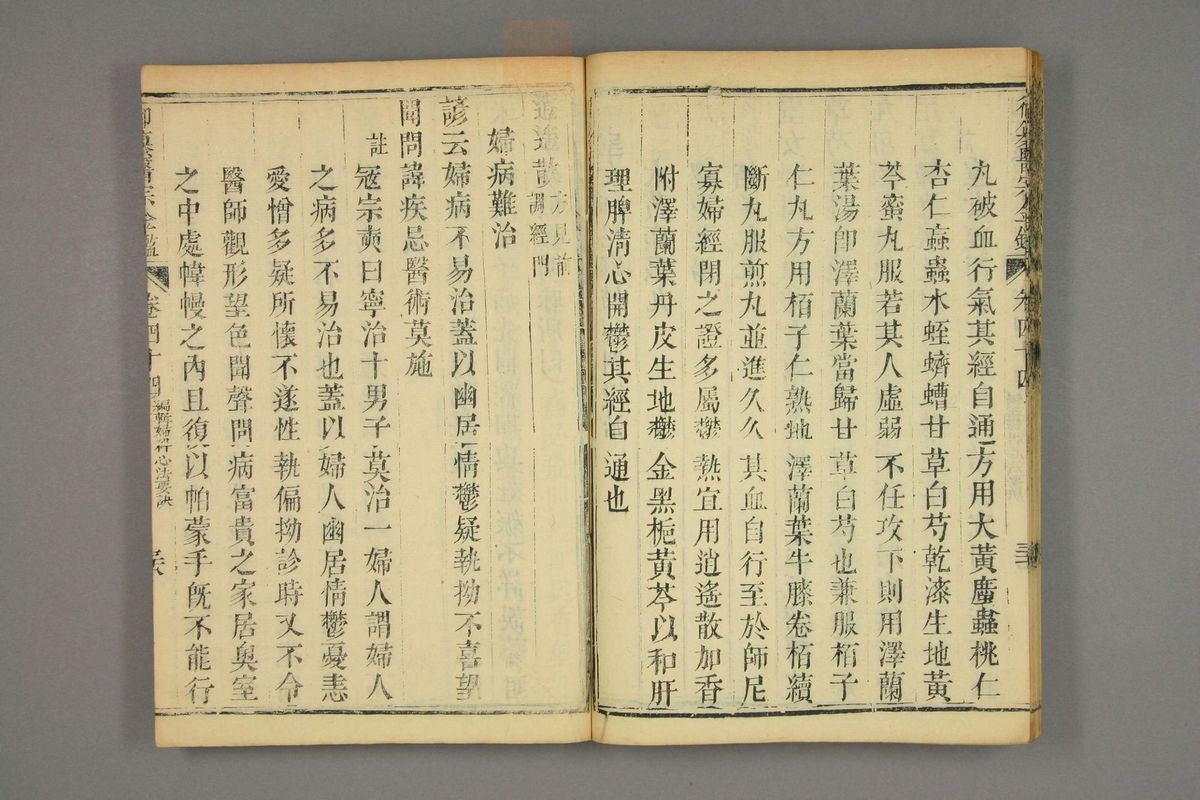 丸破血行氣其經自通方用大黃䗪蟲桃仁
杏仁蝱蟲水蛭蠐螬甘草白芍乾漆生地黃
芩蜜丸服若其人虛弱不任攻下則用澤蘭
葉湯卽澤蘭葉當歸甘草白芍也兼服栢子
仁丸方用栢子仁熟地澤蘭葉牛膝卷栢續
斷丸服煎丸並進久久其血自行至於師尼
寡婦經閉之證多屬鬱熱宜用逍遙散加香
附澤蘭葉丹皮生地鬱金黑梔黃芩以和肝
理脾淸心開鬱其經自通也
逍遙散方見前調經門
婦病難治
諺云婦病不易治蓋以幽居情鬱疑執拗不喜望
聞問諱疾忌醫術莫施
註 冦宗奭曰寧治十男子莫治一婦人謂婦人
之病多不易治也蓋以婦人幽居情鬱憂恚
愛憎多疑所懷不遂性執偏拗診時又不令
醫師觀形望色聞聲問病富貴之家居奧室
之中處幃幔之內且復以帕蒙手旣不能行
御纂醫宗金鑑 卷四十四 編輯婦科心法要訣